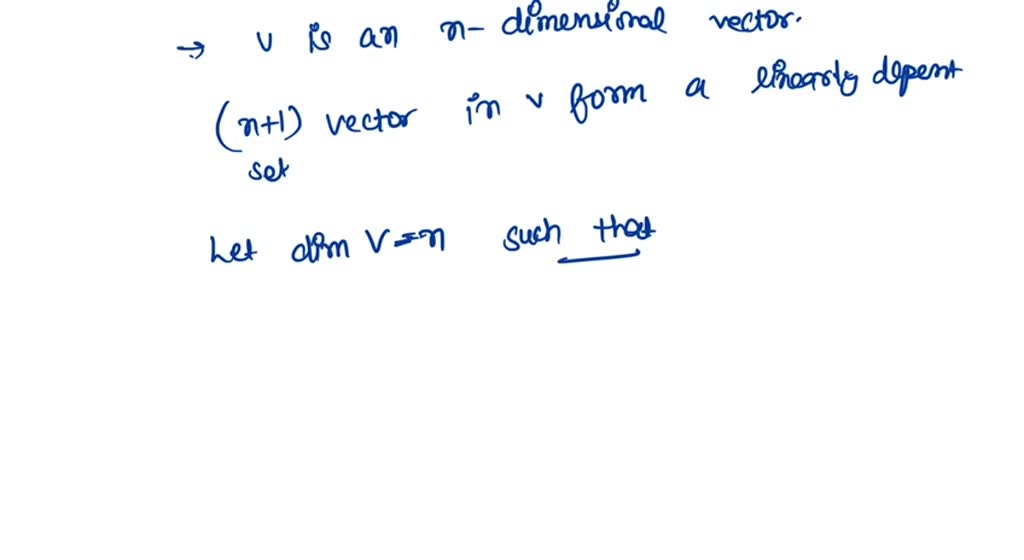 → v is an n-dimensional vector.
(n+1) vector in v form a linearly depent
set
Let dim V=n such that